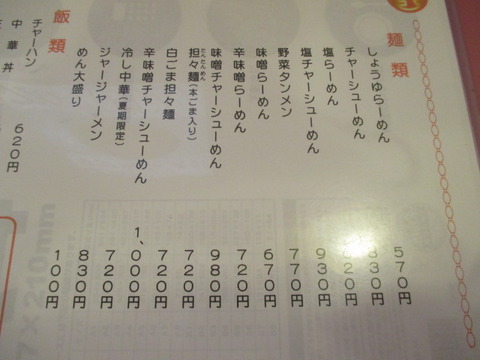 麺類
しょうゆらーめん 570円
チャーシューめん 830円
塩らーめん 620円
塩チャーシューめん 930円
野菜タンメン 770円
味噌らーめん 670円
辛味噌らーめん 720円
味噌チャーシューめん 980円
担々麺(本ごま入り) 720円
たんたんめん
白ごま担々麺 720円
辛味噌チャーシューめん 1、000円
冷し中華(夏期限定) 720円
ジャージャーメン 830円
めん大盛り 100円
飯類
チャーハン 620円
中華丼